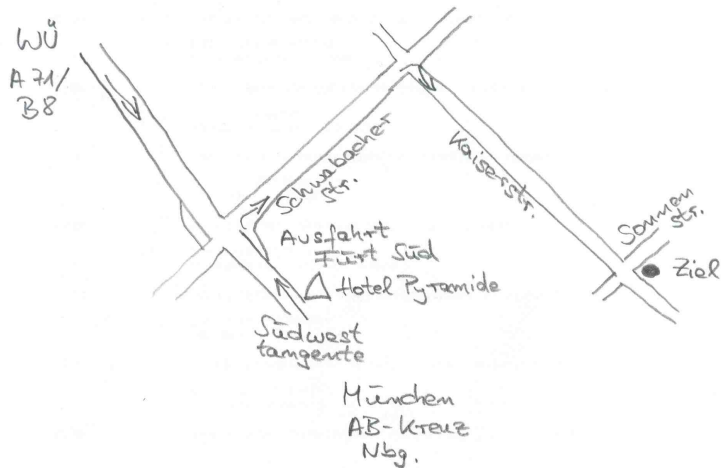 WÜ
A71/
B8
Schwabacher
str.
Kaiserstr.
Sonnen
str.
Ziel
Ausfahrt
Fürt Süd
Hotel Pyramide
Südwest
tangente
München
AB-Kreuz
Nbg.